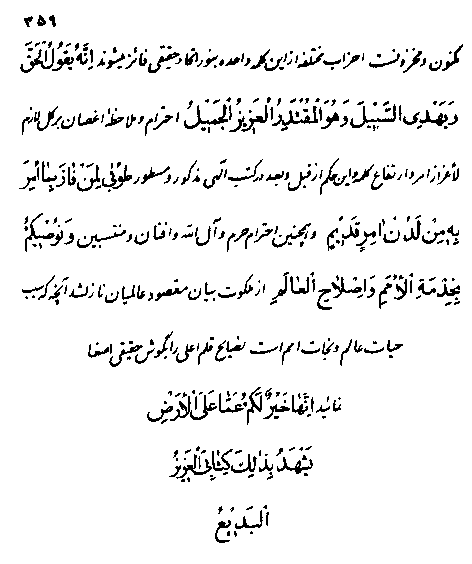 ۳۵۹
مکنون و مخزونست احزاب مختلفه از این کلمهٔ واحده بنور اتحاد حقیقی فائز میشوند اِنَّهُ یَقُولُ الْحَقَّ
وَیَهْدِی السَّبِیلَ وَهُوَ الْمُقْتَدِرُ الْعَزِیزُ الْجَمِیلُ احترام و ملاحظهٔ اغصان بر کل لازم
لأعزاز امر و ارتفاع کلمه و این حکم از قبل و بعد در کتب الهی مذکور و مسطور طُوبٰی لِمَنْ فَازَ بِمَا اُمِرَ
بِهِ مِنْ لَدُنْ آمِرٍ قَدِیمٍ و همچنین احترام حرم و آل الله و افنان و منتسبین وَ نُوصِیکُمْ
بِخِدْمَةِ الْأُمَمِ وَ اِصْلَاحِ الْعَالَمِ از ملکوت بیان مقصود عالمیان نازل شد آنچه که سبب
حیات عالم و نجات امم است نصایح قلم اعلی را بگوش حقیقی اصغا
نمائید اِنَّهَا خَیْرٌ لَکُمْ عَمَّا عَلَی الْأَرْضِ
یَشْهَدُ بِذٰلِکَ کِتَابِیَ الْعَزِیزُ
الْبَدِیعُ